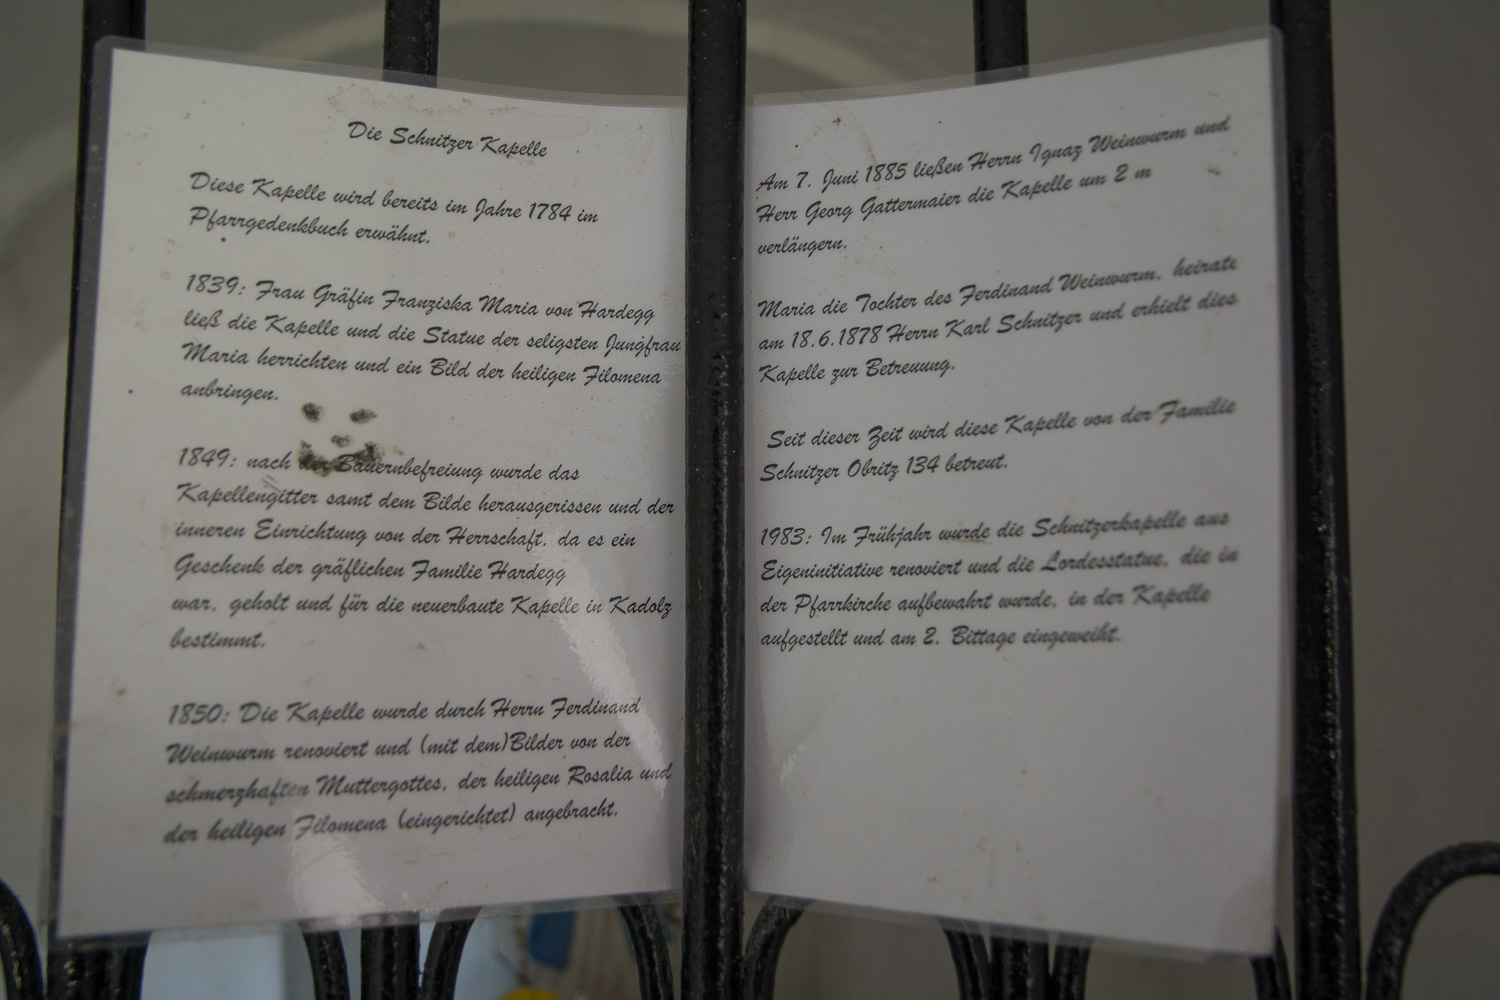 Die Schnitzer Kapelle
Diese Kapelle wird bereits im Jahre 1784 im
Pfarrgedenkbuch erwähnt.
1839: Frau Gräfin Franziska Maria von Hardegg
ließ die Kapelle und die Statue der seligsten Jungfrau
Maria herrichten und ein Bild der heiligen Filomena
anbringen.
1849: nach der Bauernbefreiung wurde das
Kapellengitter samt dem Bilde herausgerissen und der
inneren Einrichtung von der Herrschaft, da es ein
Geschenk der gräflichen Familie Hardegg
war, geholt und für die neuerbaute Kapelle in Kadolz
bestimmt.
1850: Die Kapelle wurde durch Herrn Ferdinand
Weinwurm renoviert und (mit dem)Bilder von der
schmerzhaften Muttergottes, der heiligen Rosalia und
der heiligen Filomena (eingerichtet) angebracht.
Am 7. Juni 1885 ließen Herrn Ignaz Weinwurm und
Herr Georg Gattermaier die Kapelle um 2 m
verlängern.
Maria die Tochter des Ferdinand Weinwurm, heirate
am 18.6.1878 Herrn Karl Schnitzer und erhielt dies
Kapelle zur Betreuung.
Seit dieser Zeit wird diese Kapelle von der Familie
Schnitzer Obritz 134 betreut.
1983: Im Frühjahr wurde die Schnitzerkapelle aus
Eigeninitiative renoviert und die Lordesstatue, die in
der Pfarrkirche aufbewahrt wurde, in der Kapelle
aufgestellt und am 2. Bittage eingeweiht.